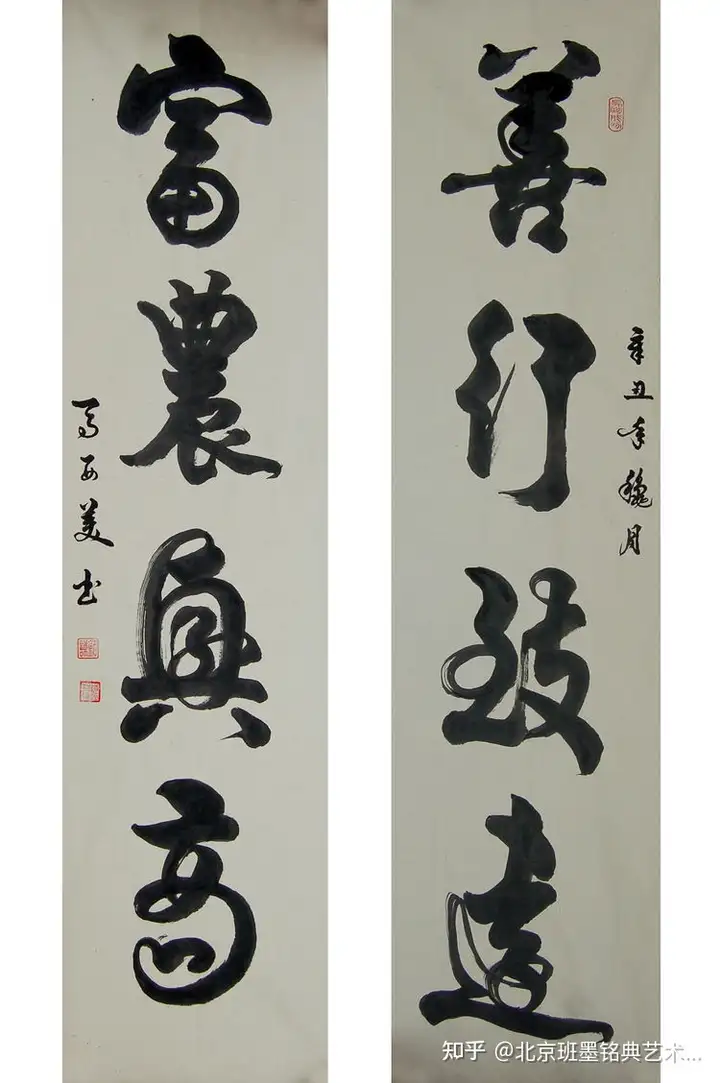 善行致远
辛丑年穐月
富農興高
马西美书
知乎 @北京班墨铭典艺术...